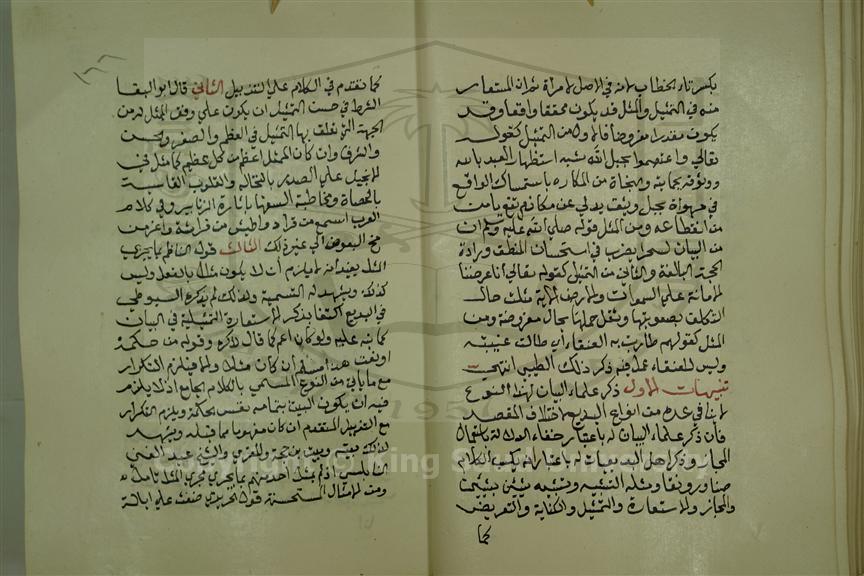 بكسر تاء الخطاب لانه في الاصل لامرأة ثم ان المستعار
منه في التمثيل والمثل قد يكون محققا واقعا وقد
يكون مقدرا مفروضا فالاول من التمثيل كقوله
تعالى واعتصموا بحبل الله شبه استظهار العبد بالله
ووثوقه بحمايته والنجاة من المكاره باستمساك الواقع
في مهواة بحبل وثيق يدلي عن مكانه يقع يامن
من انقطاعه ومن المثل قوله صلى الله عليه وسلم ان
من البيان لسحرا يضرب في استحسان المنطق وارادة
الحجة البالغة والثاني من التمثيل كقوله تعالى انا عرضنا
الامانة على السموات والارض الآية مثلت حال
التكليف بصعوبتها وثقل حملها بحال مفروضة ومن
المثل كقولهم طارت به العنقاء أي طالت غيبته
وليس للعنقاء عمله ذكر ذلك الطيبي انتهى
تنبيهات الاول ذكر علماء البيان لهذا النوع
لا ينافي عده من انواع البديع لاختلاف المقصد
فان ذكر علماء البيان له باعتبار خفاء الدلالة باستعمال
المجاز وذكر اهل البديعيات له باعتبار انه يكسب الكلام
حسنا ورونقا ومثله التشبيه وتشبيه شيئين بشيئين
والمجاز والاستعارة والتمثيل والكناية والتعريض
كما
١٢٢
كما تقدم في الكلام على التذييل الثاني قال ابو البقا
الشرط في حسن التمثيل ان يكون على وفق الممثل له من
الجهة التي تعلق بها التمثيل في العظم والصغر والخسة
والشرف وان كان الممثل اعظم من كل عظيم كما مثل في
الانجيل على الصدر بالنخالة والقلوب القاسية
بالحصاة ومخاطبة السفهاء باثارة الزنابير وفي كلام
العرب اسمع من قراد واطيش من فراشة واعز من
مخ البعوض الى غير ذلك الثالث قول الناظم بما يجري
المثل يفيد انه لا يلزم ان لا يكون مثلا بالفعل وليس
كذلك ويشهد له التسمية ولذلك لم يذكره السيوطي
في البديع اكتفا بذكر الاستعارة التمثيلية في البيان
كما نبه عليه ولو كان اعم كما قال لذكره وقوله من حكمة
او نعت هذا مسلم ان كان مثلا والا فيلزم التكرار
مع ما يأتي من النوع المسمى بالكلام الجامع اذ لا يلزم
فيه ان يكون البيت بتمامه نفس بحكمة ويلزم التكرار
مع التذييل المتقدم ان كان مفهوما مما قبله ويشهد
لذلك بيته وبيت بن حجة والمقري والشيخ عبد الغني
النابلسي اذ لم يمثل احد منهم بما يجري مجرى المثل تامله
ومن الامثال المستحسنة قول الحريري ضغث على ابالة